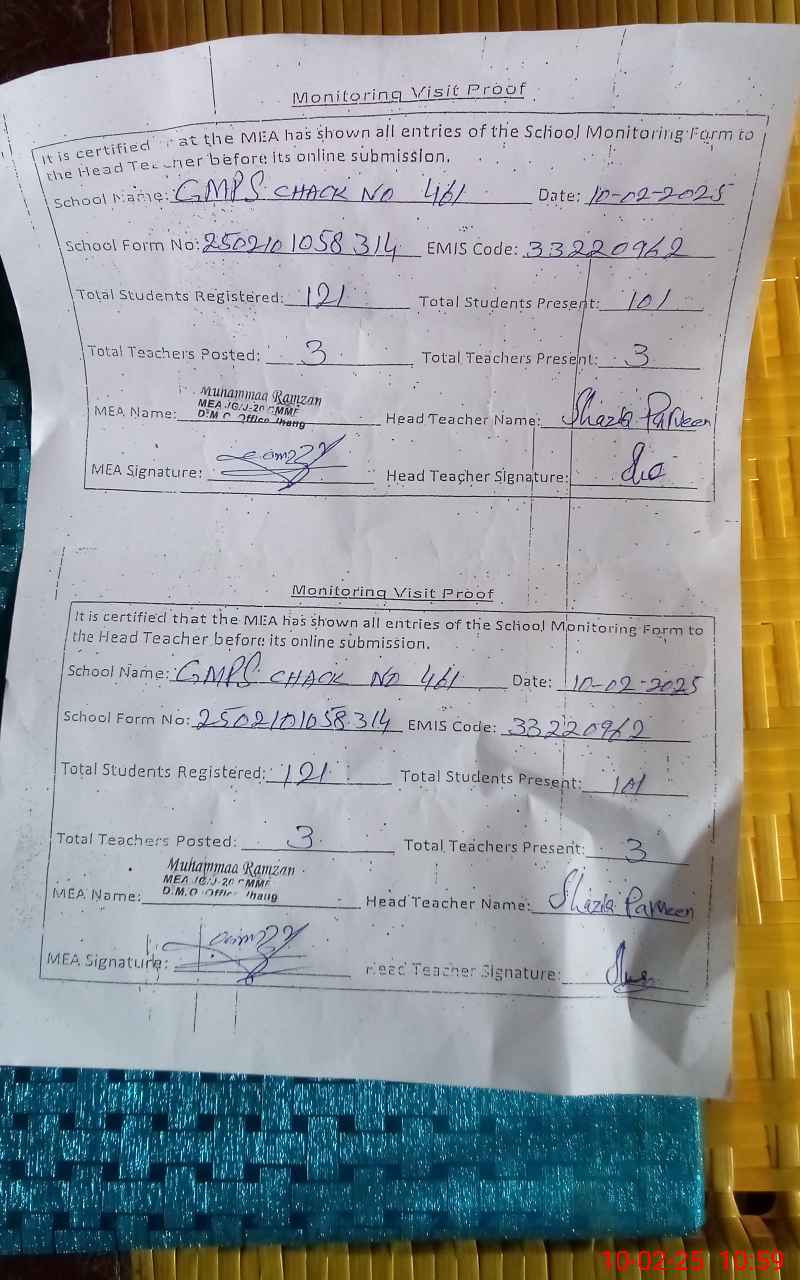 Monitoring Visit Proof
It is certified at the MEA has shown all entries of the School Monitoring Form to
the Head before its online submission.
School Name: GMPS CHACK NO 461 Date: 10-02-2025
School Form No: 2502101058314 EMIS Code: 33220962
Total Students Registered: 121 Total Students Present: 101
Total Teachers Posted: 3 Total Teachers Present: 3
Muhammad Ramzan
MEA
D.M.O Office Jhang
MEA Name: Head Teacher Name: Shazia Parveen
MEA Signature: Head Teacher Signature:
Monitoring Visit Proof
It is certified that the MEA has shown all entries of the School Monitoring Form to
the Head Teacher before its online submission.
School Name: GMPS CHACK NO 461 Date: 10-02-2025
School Form No: 2502101058314 EMIS Code: 33220962
Total Students Registered: 121 Total Students Present: 101
Total Teachers Posted: 3 Total Teachers Present: 3
Muhammad Ramzan
MEA
D.M.O Office Jhang
MEA Name: Head Teacher Name: Shazia Parveen
MEA Signature: Head Teacher Signature:
10-02-25 10:59